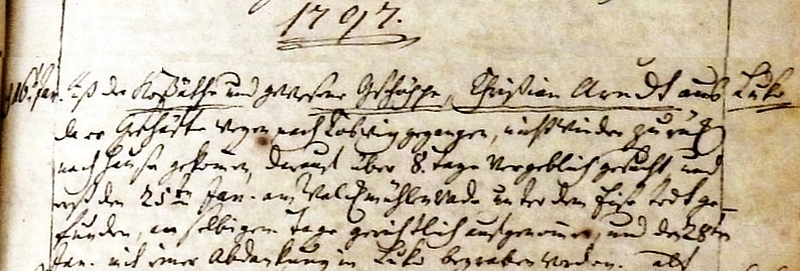 1797.
16 Jan. Ist der Koßäthe und gewesene Gschöppe, Christian Arndt aus Luko
da er Geschäfte wegen nach Coswig gegangen, nicht wieder zurück
nach Hause gekommen, darauf über 8. Tage vergeblich gesucht, und
erst den 25ten Jan. am Walckmühlen unter dem Eise todt ge-
funden, an selbigem Tage gerichtlich aufgenommen, und den 28ten
Jan. mit einer Abdankung in Luko begraben worden. alt